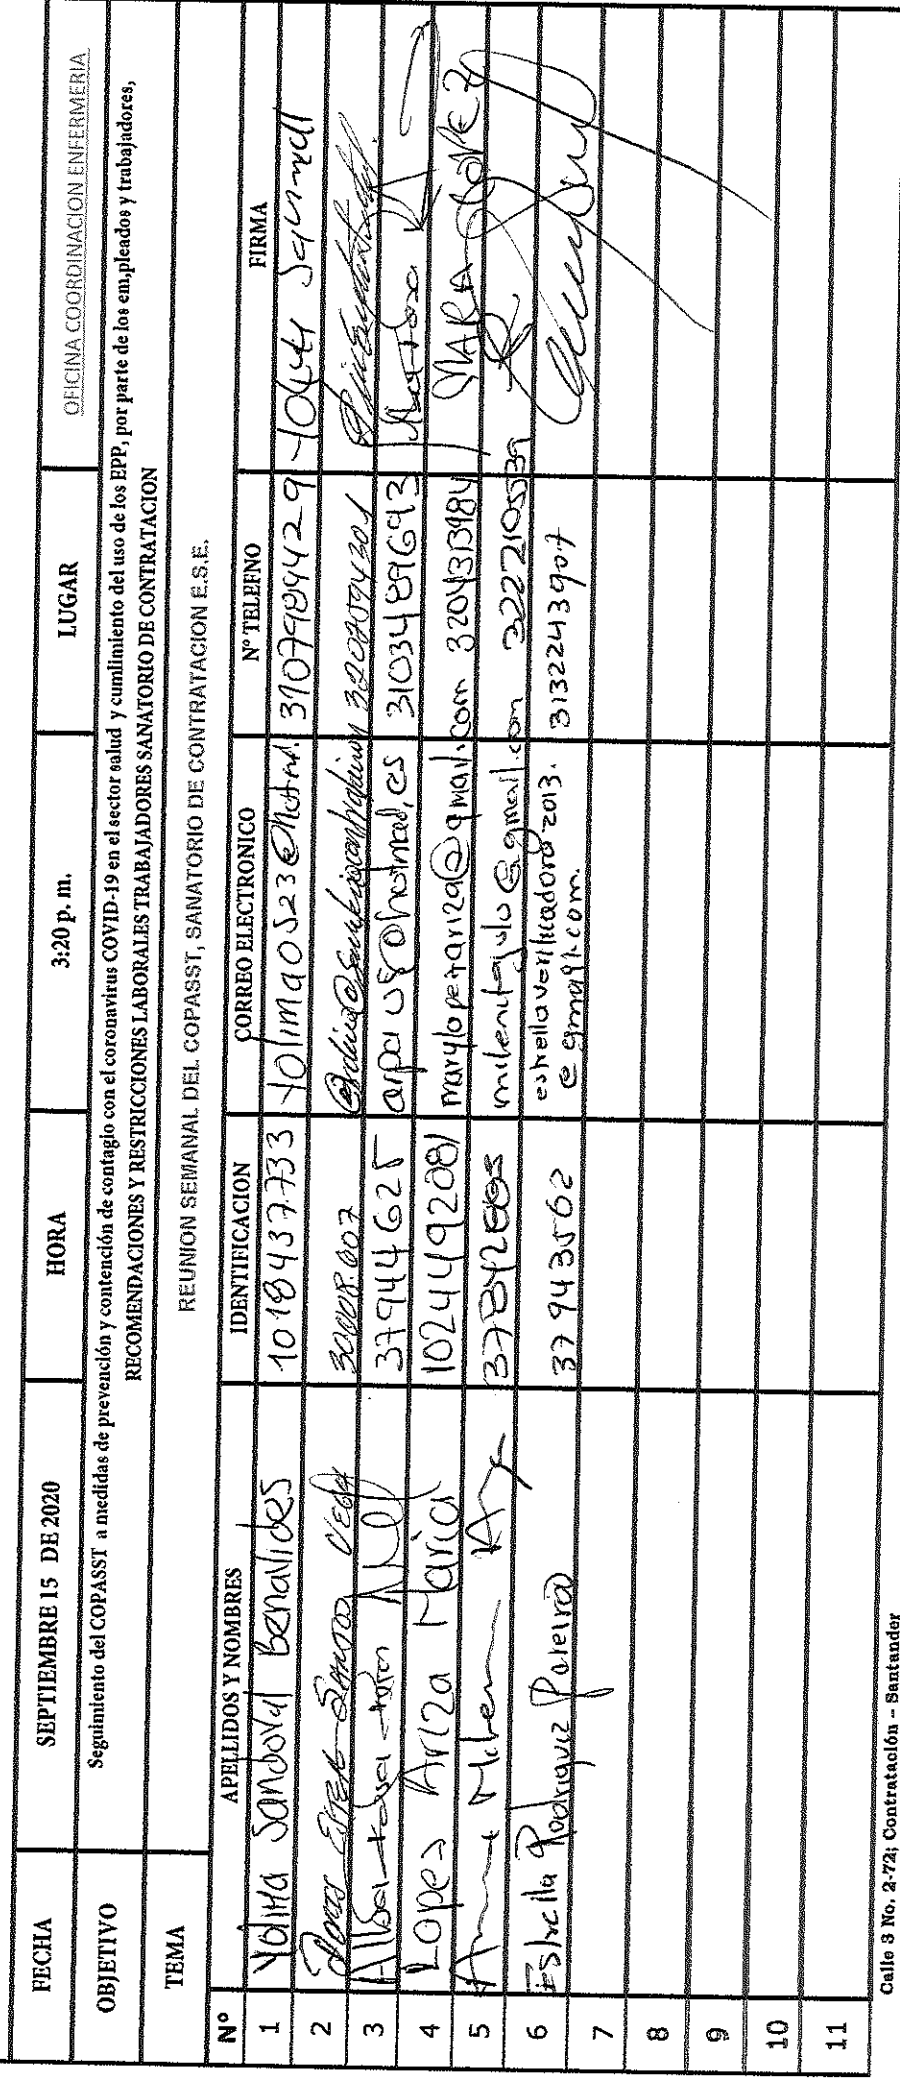 FECHA SEPTIEMBRE 15 DE 2020 HORA 3:20 p. m. LUGAR OFICINA COORDINACION ENFERMERIA
OBJETIVO Seguimiento del COPASST a medidas de prevención y contención de contagio con el coronavirus COVID-19 en el sector salud y cumlimiento del uso de los EPP, por parte de los em,pleados y trabajadores,
RECOMENDACIONES Y RESTRICCIONES LABORALES TRABAJADORES SANATORIO DE CONTRATACION
TEMA REUNION SEMANAL DEL COPASST, SANATORIO DE CONTRATACION E.S.E.
Nº APELLIDOS Y NOMBRES IDENTIFICACION CORREO ELECTRONICO Nº TELEFNO FIRMA
1 Yolima Sandoval Benavides 1018437733 3107989429
2 Santos 30008.007
3 37944625 3103489693
4 Lopez Ariza Maria 1024492081 marylopezariza@gmail.com 3204313984 MARIA LOPEZ
5 Milena @gmail.com 3222105539
6 Estrella Rodriguez Pareira 37943562 estrellaverificadora2013. 3132243907
@gmail.com.
7
8
9
10
11
Calle 3 No. 2-72; Contratación – Santander